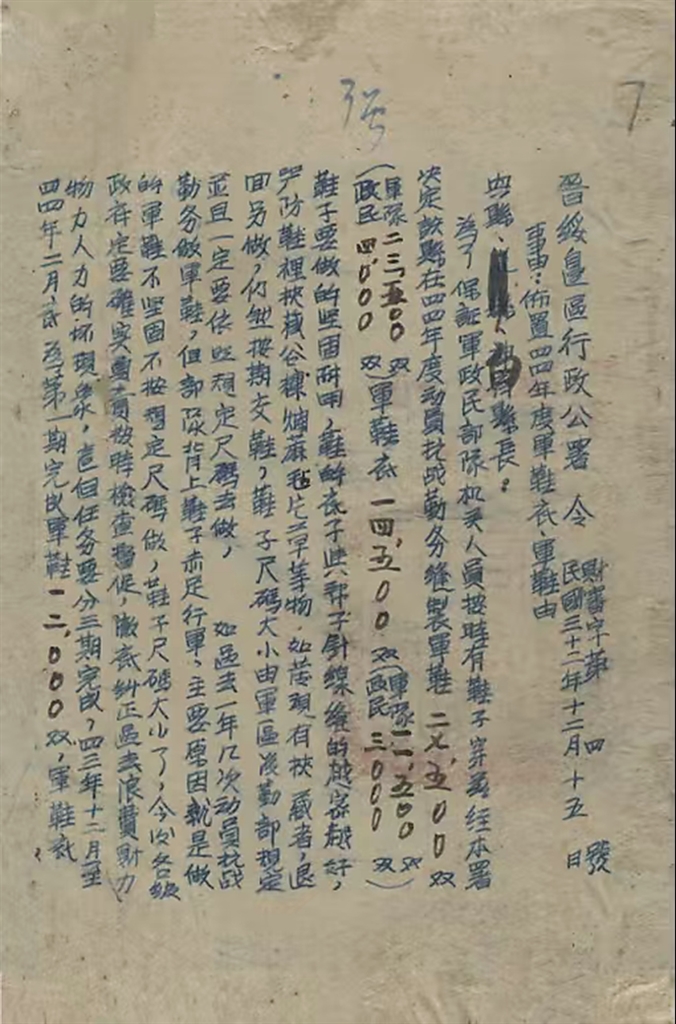 7
晋綏邊區行政公署 令
財審字第 四 號
民國三十二年十二月十五日
事由:佈置四四年度軍鞋衣、軍鞋由
興縣、縣長:
為了保証軍政民部隊机关人員按時有鞋子穿,經本署
决定該縣在四四年度动員抗战勤务縫製軍鞋二七、五00双
(軍隊二三、五00双
政民四、000双)軍鞋底一四、五00双(軍隊一一、五00双
政民三、000双)
鞋子要做的坚固耐用,鞋的底子與帮子針線縫的越密越好,
严防鞋裡挾藏公裸爛蔴毡片草等物.如發現有挾藏者,退
回另做,仍然按期交鞋,鞋子尺碼大小由軍區後勤部規定
並且一定要依照規定尺碼去做, 如過去一年几次动員抗战
勤务做軍鞋,但部隊背上鞋子赤足行軍,主要原因就是做
的軍鞋不坚固不按規定尺碼做,鞋子尺碼大小了,今後各級
政府定要確实負責按時檢查督促,徹底糾正過去浪費財力
物力人力的坏現象,這個任务要分三期完成,四三年十二月至
四四年二月底為第一期完成軍鞋一二、000双,軍鞋底